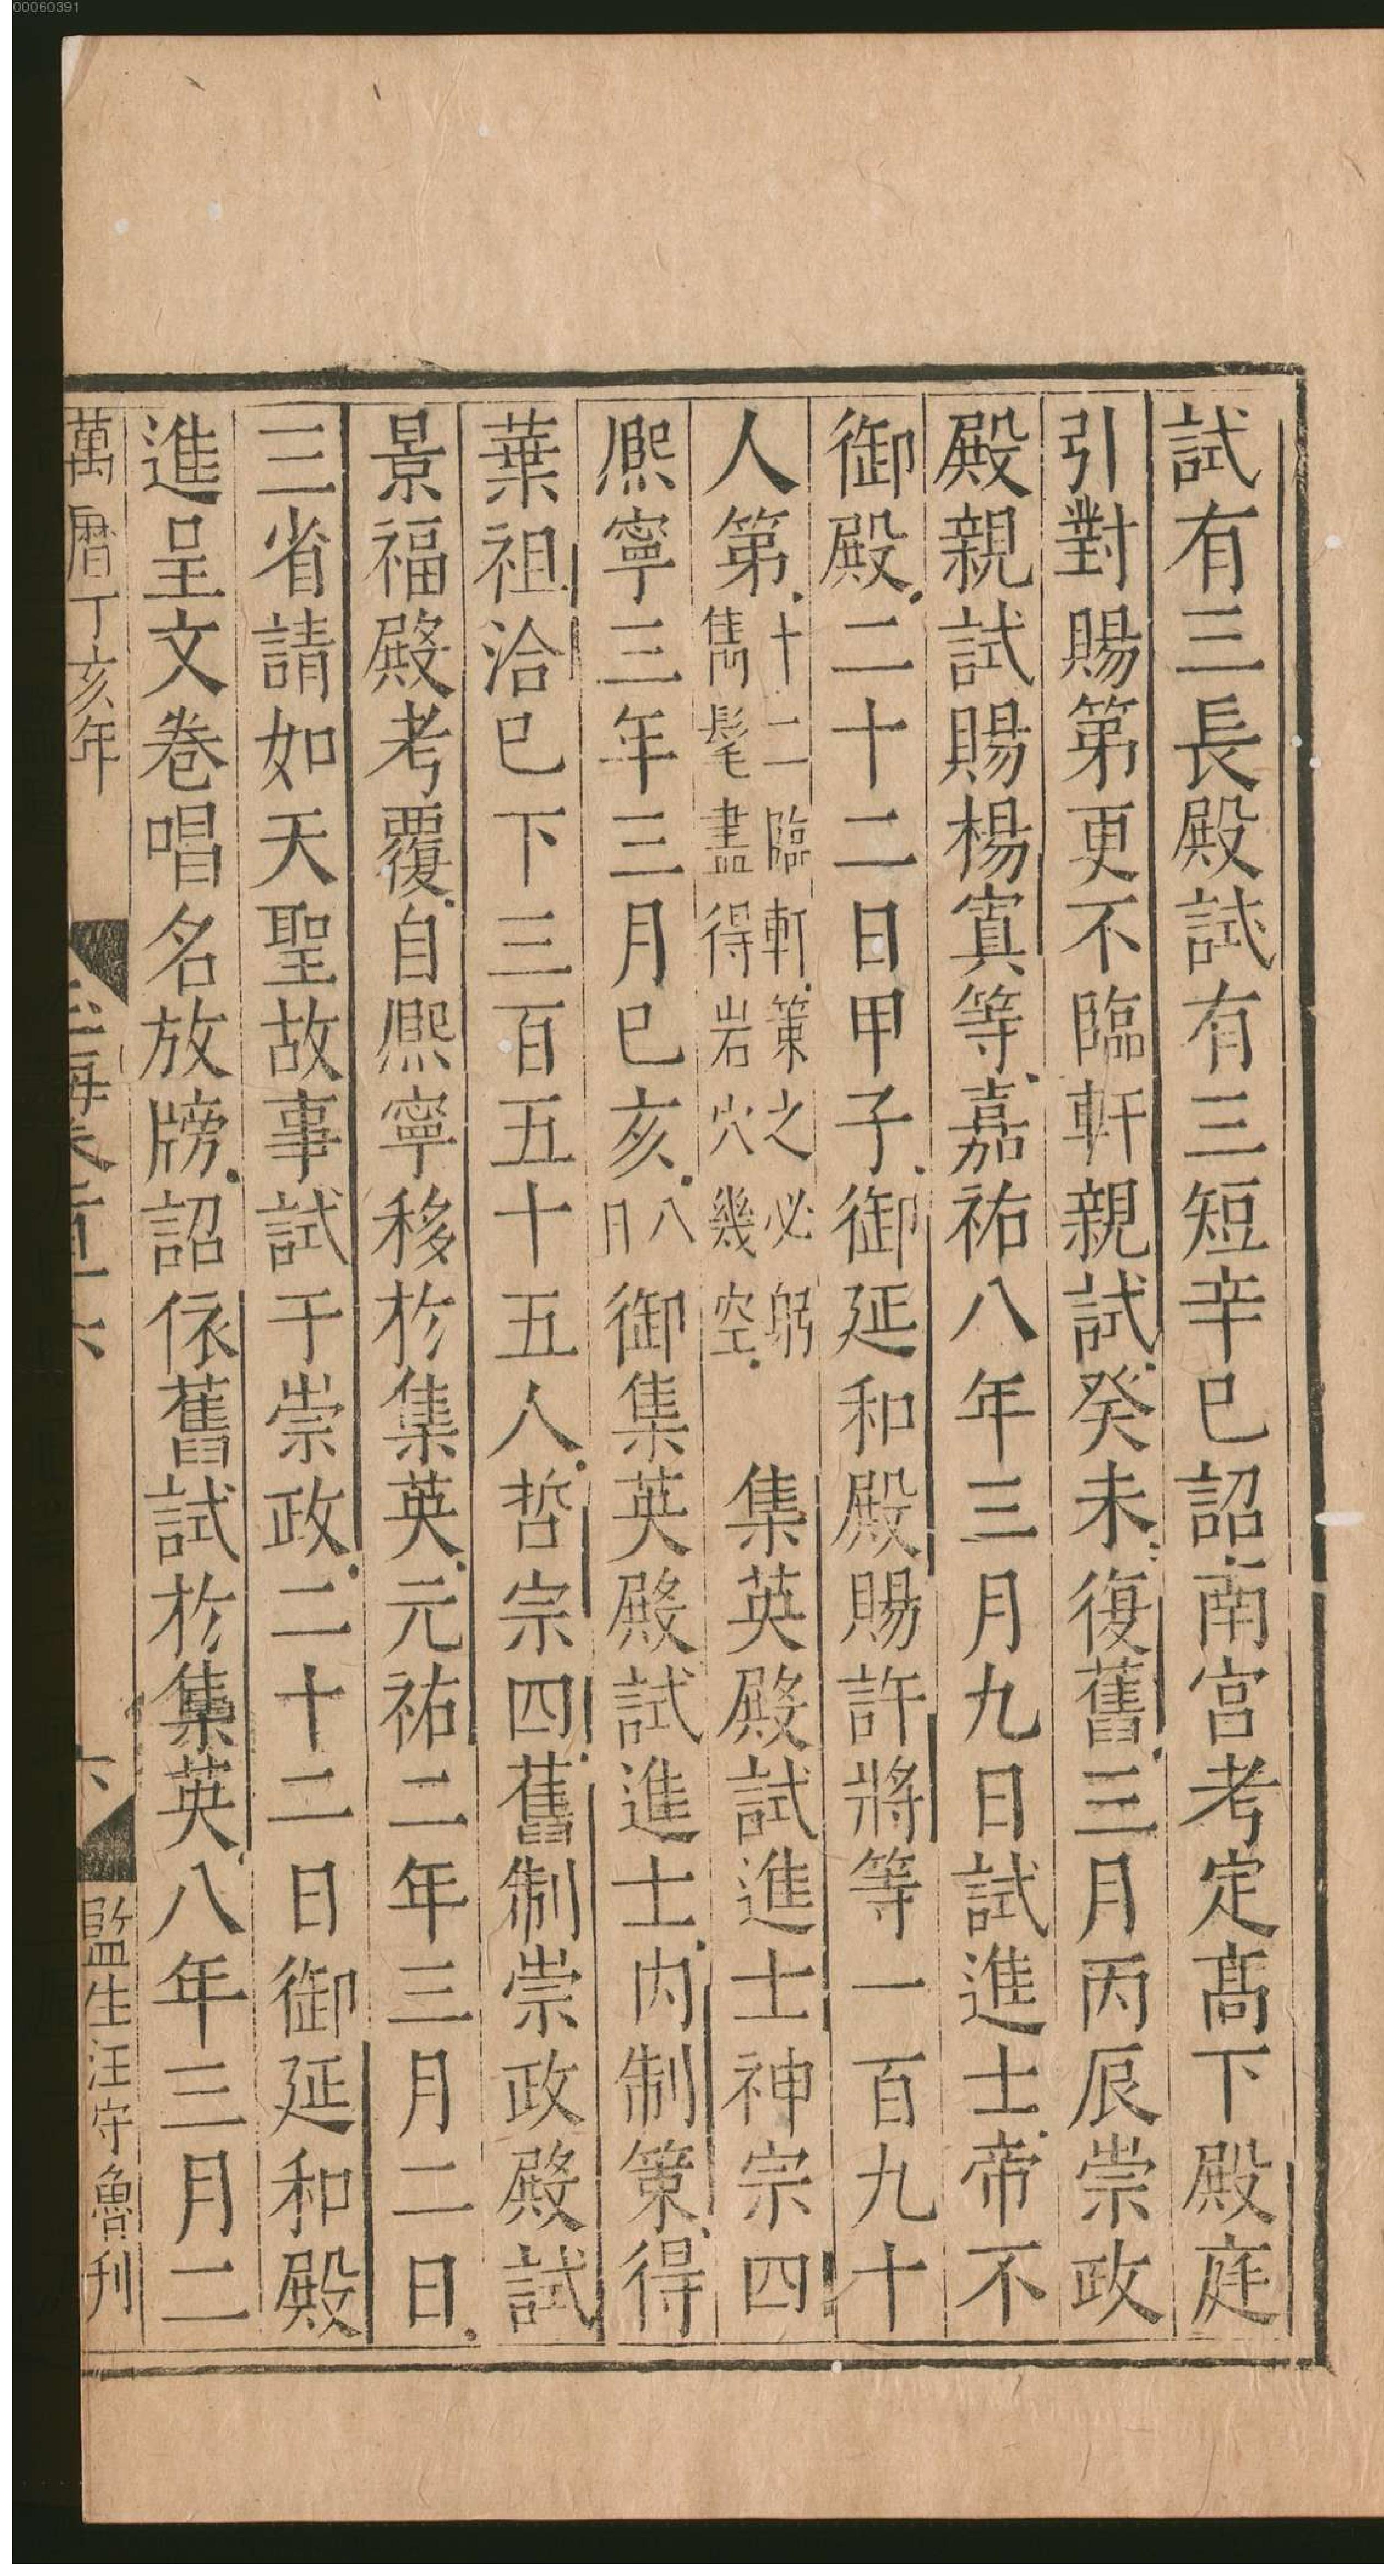 00060391
試有三長殿試有三短辛巳詔南宫考定髙下殿庭
引對賜第更不臨軒親試癸未復舊三月丙辰崇政
殿親試賜楊寘等嘉祐八年三月九日試進士帝不
御殿二十二日甲子御延和殿賜許將等一百九十
人第十二臨軒策之必躬
雋髦盡得岩穴幾空　集英殿試進士神宗四
熈寧三年三月巳亥八日御集英殿試進士内制策得
葉祖洽巳下三百五十五人哲宗四舊制崇政殿試
景福殿考覆自熈寧移於集英元祐二年三月二日
三省請如天聖故事試于崇政二十二日御延和殿
進呈文卷唱名放牓詔依舊試於集英八年三月二
萬曆丁亥年
六
監生汪守魯刋